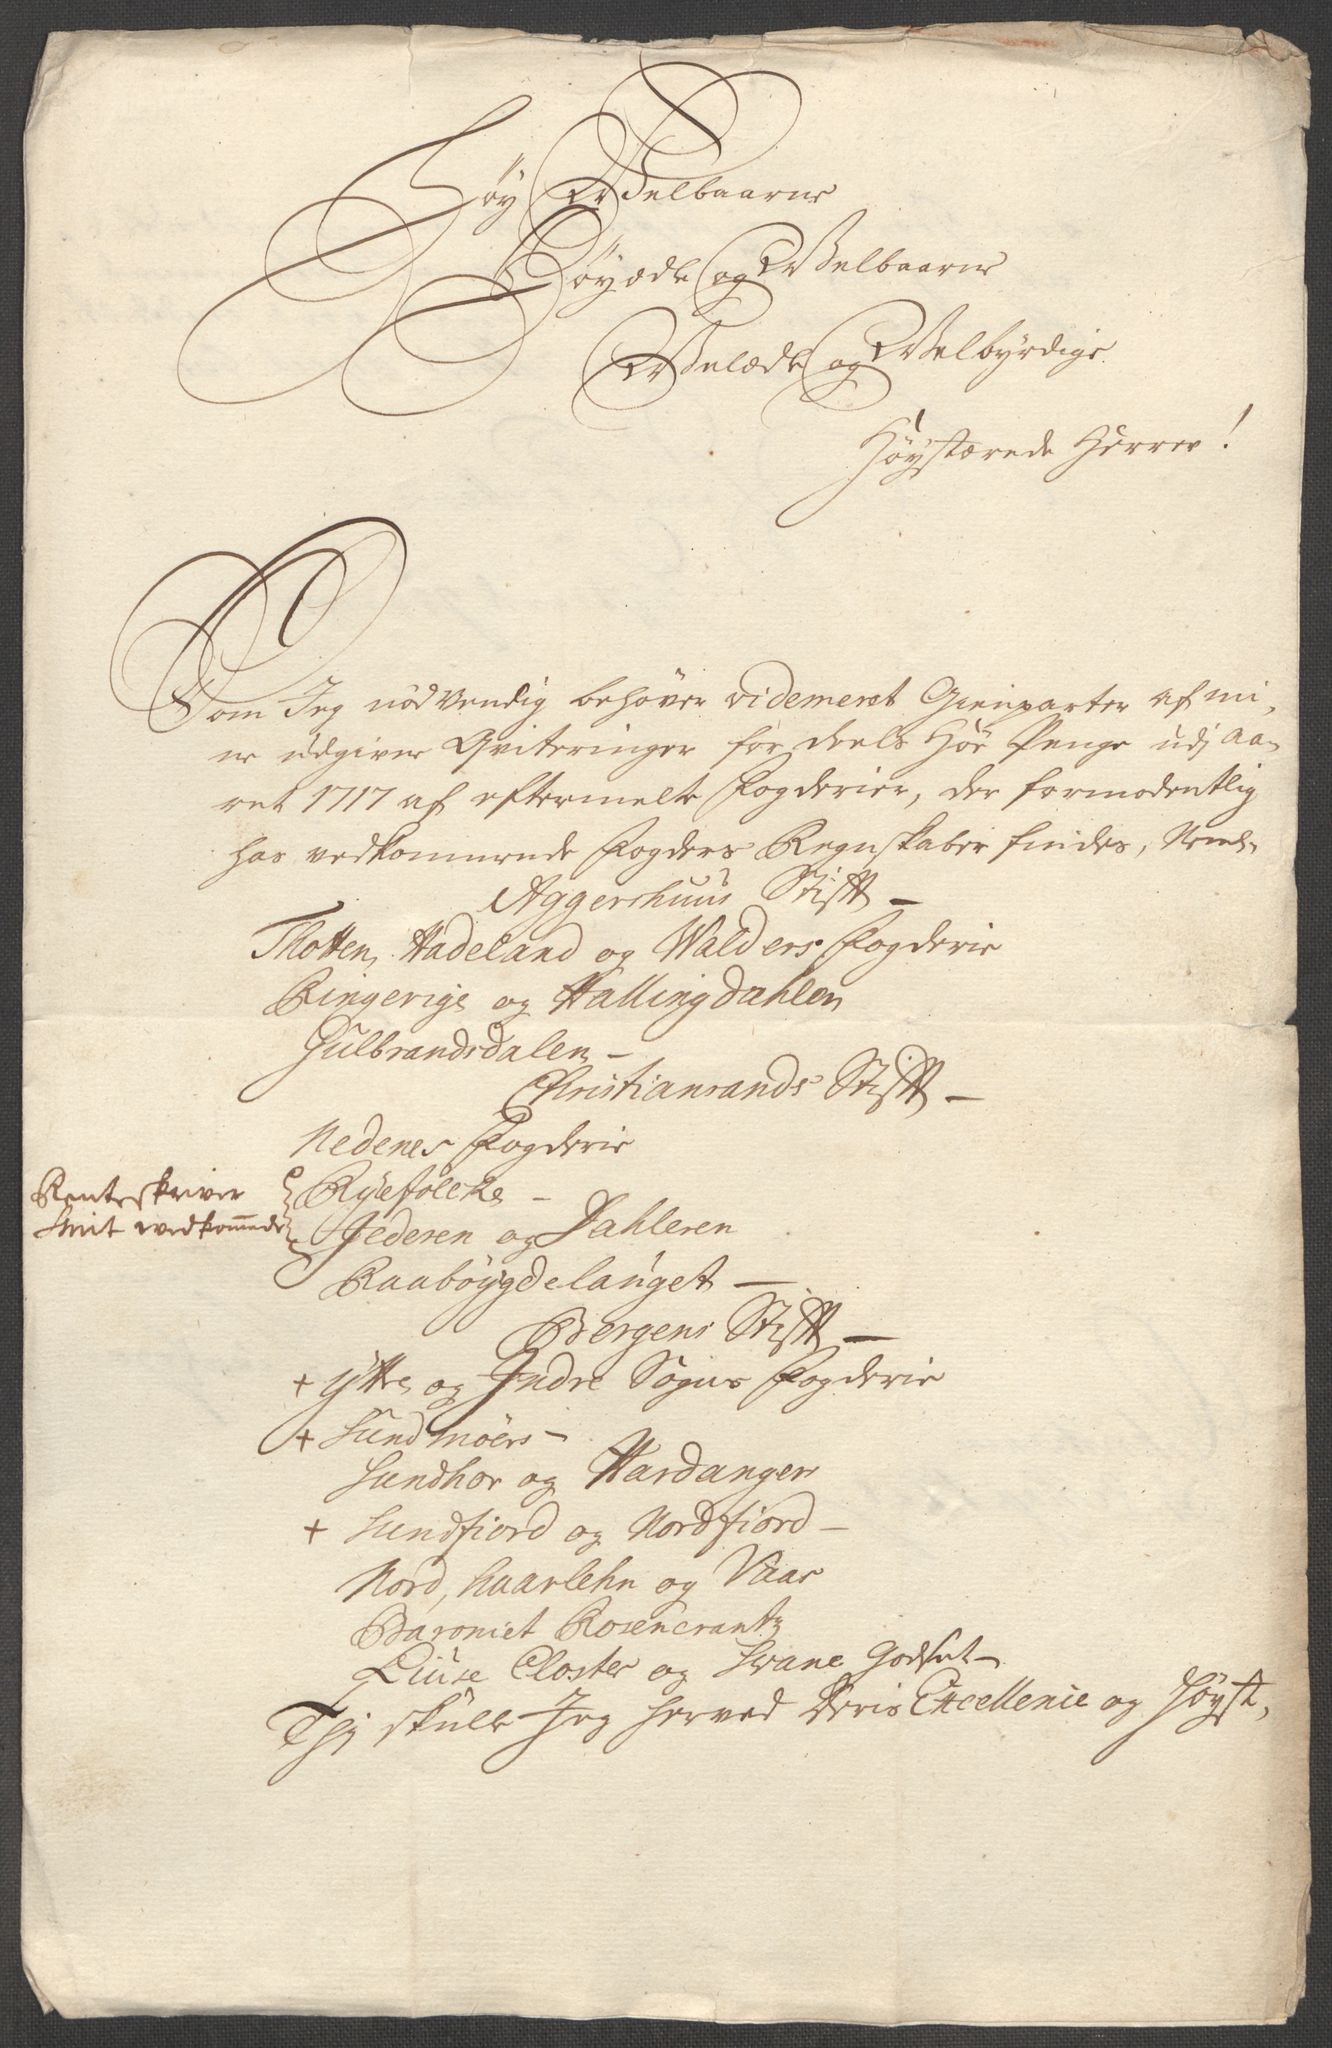 Høy Welbaarne
Høyædle og Welbaarne
Welædle og Welbyrdige
Høystærede Herrer!
Som Jeg nødvendig behøver videmeret Gienparter af mi,
ne udgivne Qviteringer for deels Hør Penge udj Aa,
ret 1717 af eftermelte Fogderier, der formodentlig
hos vedkommende Fogders Regnskaber findes, Neml.
Aggershuus Stift
Thotten, Hadeland og Walders Fogderie
Ringerige og Hallingdahlen
Gulbrandsdalen
Christiansands Stift
Nedenes Fogderie
Renteskriver
Smit vedkommende
Ryefølcke
Jederen og Dahleren
Raabøygdelauget
Bergens Stift
+ Ytte og Indre Sogns Fogderie
+ Sundmøers
Sundhor og Hardanger
+ Sundfiord og Nordfiord
Nord,huarlehn og Vaas
Baroniet Rosencrantz
Liuse Closter og Svane Godset
Thj skulle Jeg herved Deris Excellence og Høyst,